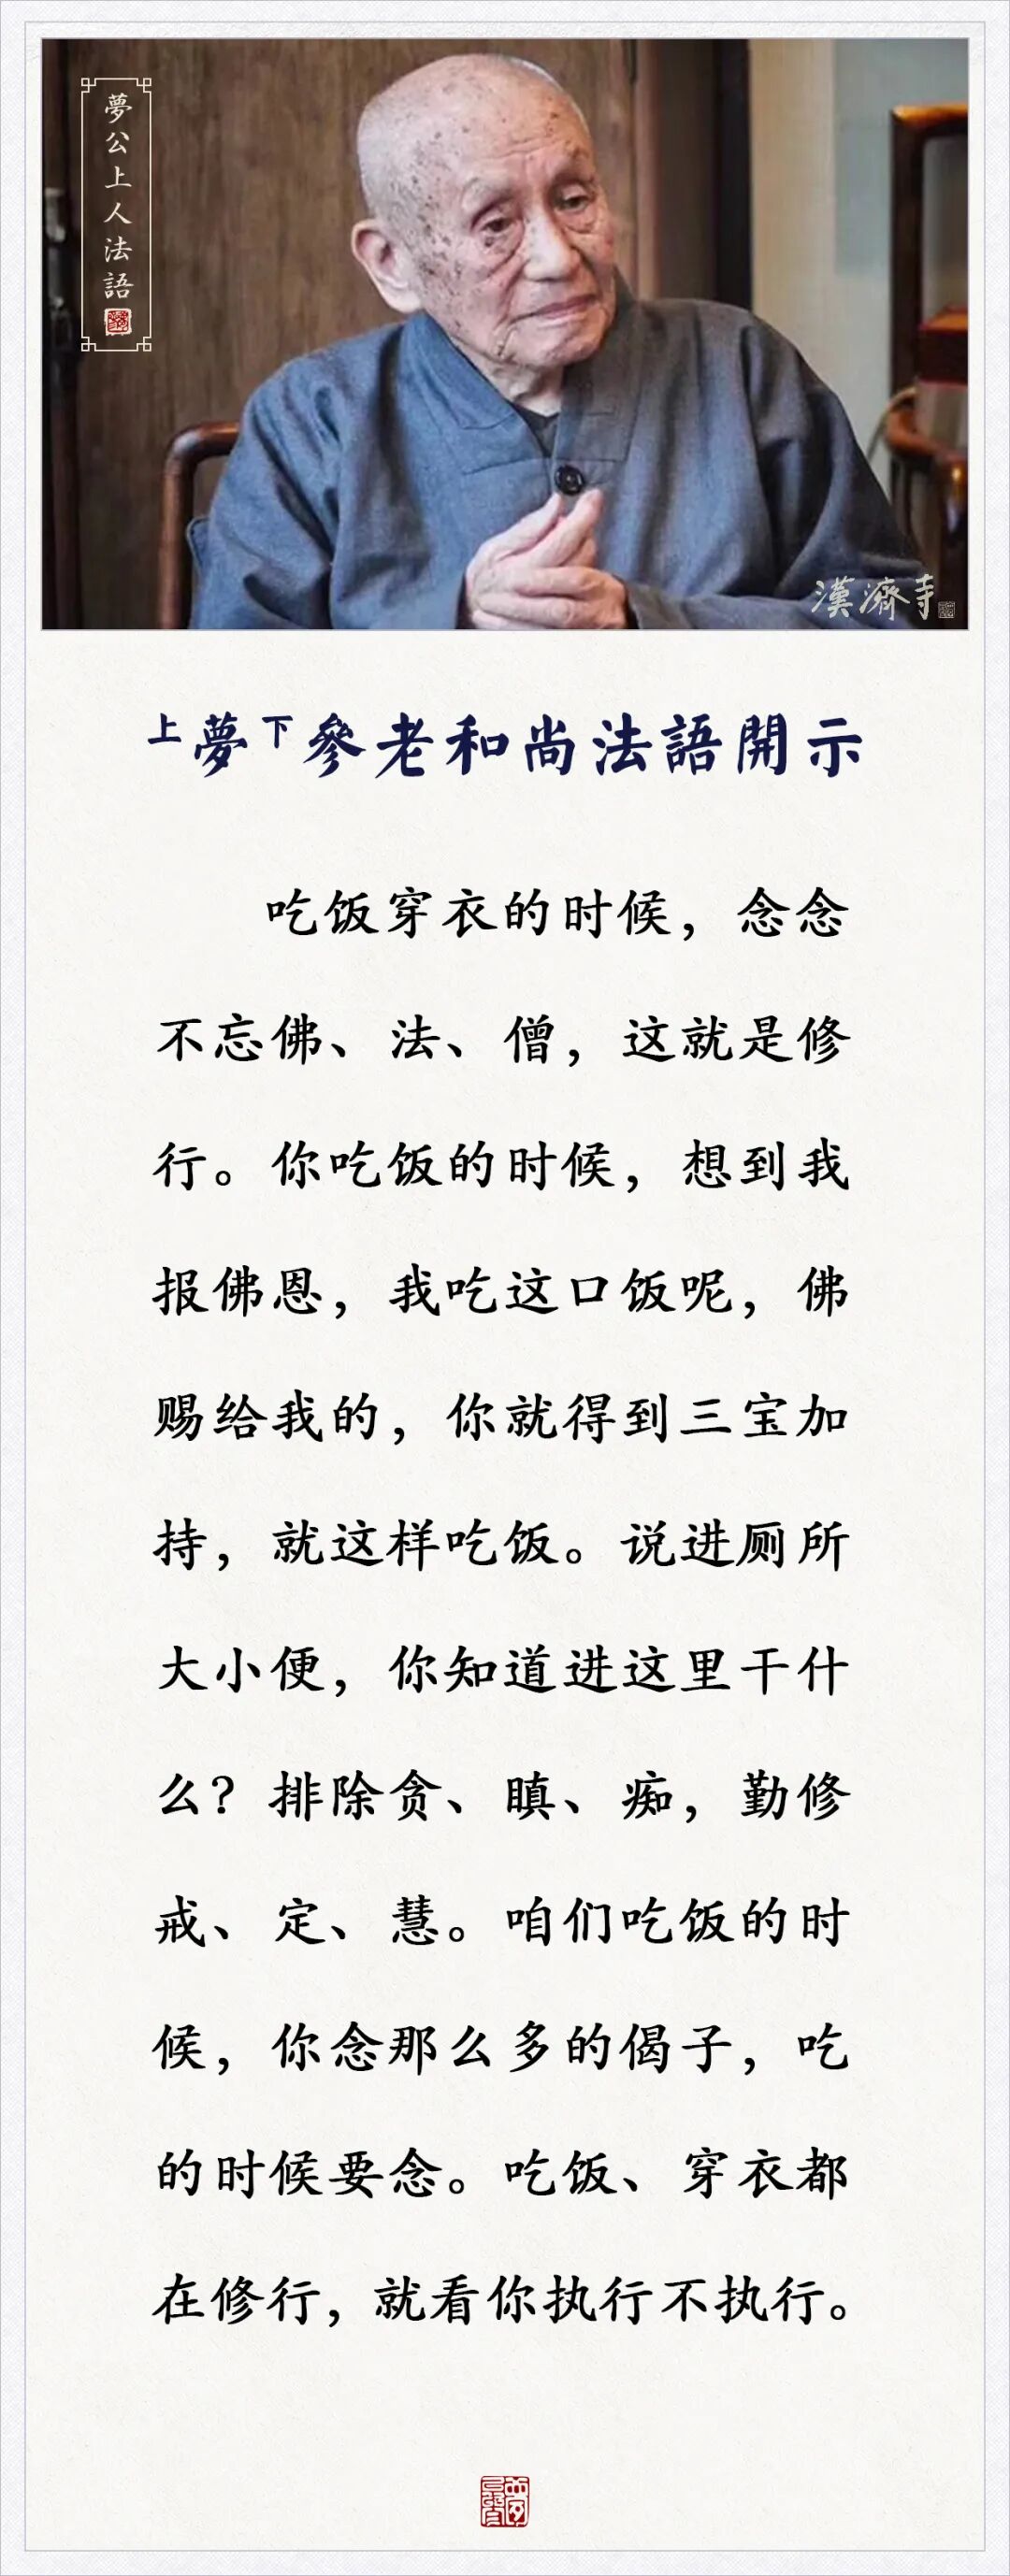 夢公上人法語
漢濟寺
上夢下參老和尚法語開示
吃饭穿衣的时候，念念
不忘佛、法、僧，这就是修
行。你吃饭的时候，想到我
报佛恩，我吃这口饭呢，佛
赐给我的，你就得到三宝加
持，就这样吃饭。说进厕所
大小便，你知道进这里干什
么？排除贪、瞋、痴，勤修
戒、定、慧。咱们吃饭的时
候，你念那么多的偈子，吃
的时候要念。吃饭、穿衣都
在修行，就看你执行不执行。